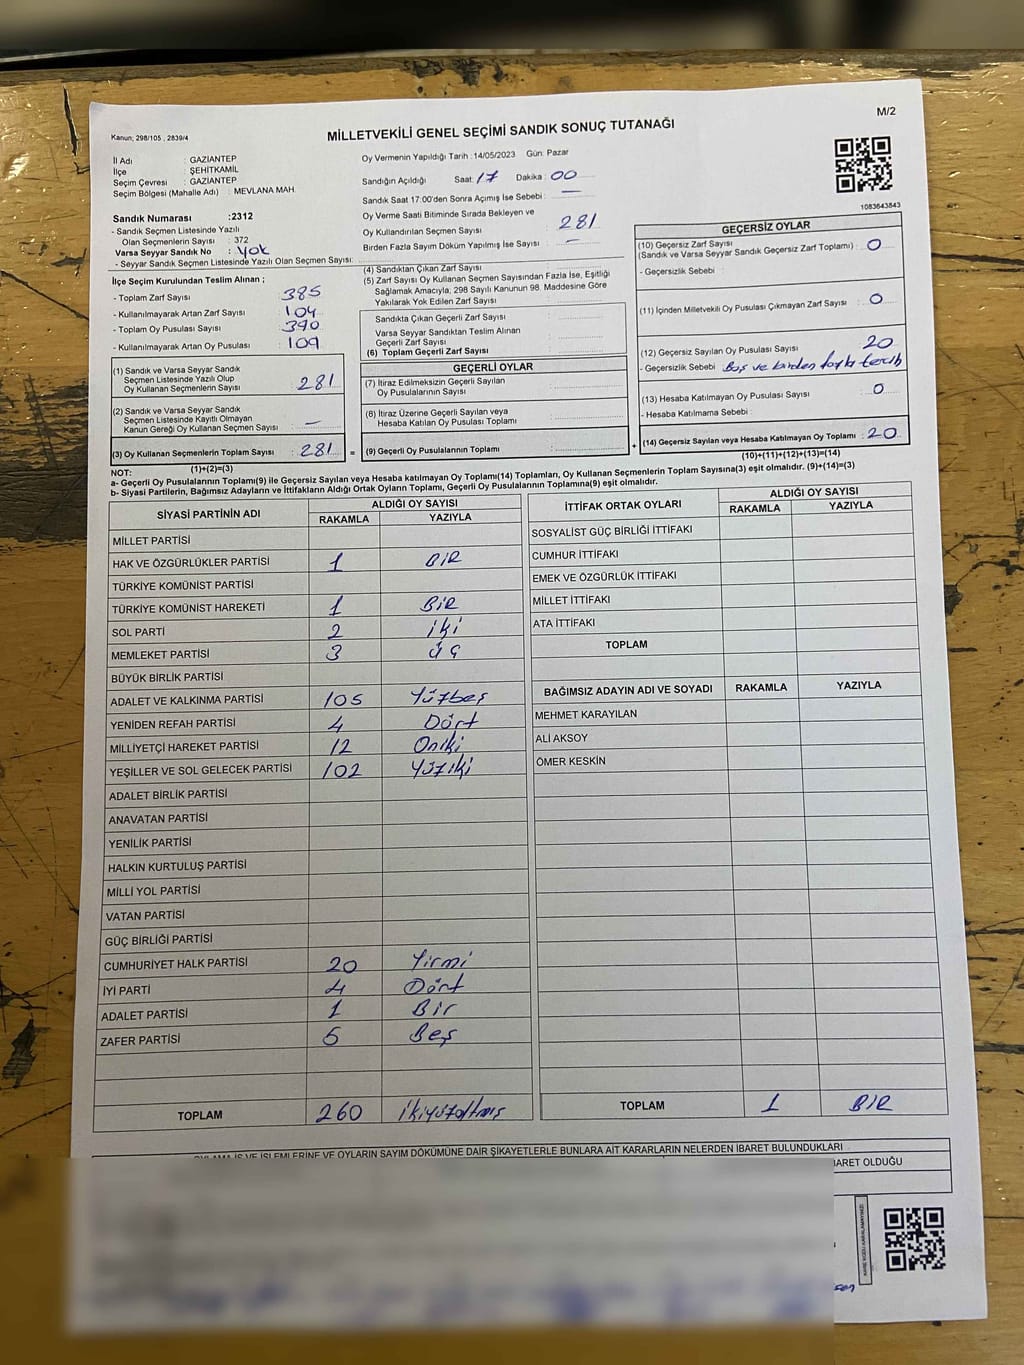 M/2
Kanun; 298/105 , 2839/4
MİLLETVEKİLİ GENEL SEÇİMİ SANDIK SONUÇ TUTANAĞI
İl Adı : GAZİANTEP
İlçe : ŞEHİTKAMİL
Seçim Çevresi : GAZİANTEP
Seçim Bölgesi (Mahalle Adı) : MEVLANA MAH.
Oy Vermenin Yapıldığı Tarih : 14/05/2023 Gün: Pazar
Sandığın Açıldığı Saat: 17 Dakika : 00
Sandık Saat 17:00'den Sonra Açımış İse Sebebi : —
Oy Verme Saati Bitiminde Sırada Bekleyen ve
Oy Kullandırılan Seçmen Sayısı : 281
Birden Fazla Sayım Döküm Yapılmış İse Sayısı : —
1083643843
Sandık Numarası :2312
- Sandık Seçmen Listesinde Yazılı
Olan Seçmenlerin Sayısı : 372
Varsa Seyyar Sandık No : Yok
- Seyyar Sandık Seçmen Listesinde Yazılı Olan Seçmen Sayısı:
İlçe Seçim Kurulundan Teslim Alınan ;
- Toplam Zarf Sayısı : 385
- Kullanılmayarak Artan Zarf Sayısı : 104
- Toplam Oy Pusulası Sayısı : 390
- Kullanılmayarak Artan Oy Pusulası : 109
(1) Sandık ve Varsa Seyyar Sandık
Seçmen Listesinde Yazılı Olup
Oy Kullanan Seçmenlerin Sayısı : 281
(2) Sandık ve Varsa Seyyar Sandık
Seçmen Listesinde Kayıtlı Olmayan
Kanun Gereği Oy Kullanan Seçmen Sayısı : —
(3) Oy Kullanan Seçmenlerin Toplam Sayısı : 281 =
(1)+(2)=(3)
(4) Sandıktan Çıkan Zarf Sayısı :
(5) Zarf Sayısı Oy Kullanan Seçmen Sayısından Fazla İse, Eşitliği
Sağlamak Amacıyla, 298 Sayılı Kanunun 98. Maddesine Göre
Yakılarak Yok Edilen Zarf Sayısı :
Sandıkta Çıkan Geçerli Zarf Sayısı :
Varsa Seyyar Sandıktan Teslim Alınan
Geçerli Zarf Sayısı :
(6) Toplam Geçerli Zarf Sayısı :
GEÇERLİ OYLAR
(7) İtiraz Edilmeksizin Geçerli Sayılan
Oy Pusulalarının Sayısı :
(8) İtiraz Üzerine Geçerli Sayılan veya
Hesaba Katılan Oy Pusulası Toplamı :
(9) Geçerli Oy Pusulalarının Toplamı : +
GEÇERSİZ OYLAR
(10) Geçersiz Zarf Sayısı
(Sandık ve Varsa Seyyar Sandık Geçersiz Zarf Toplamı) : 0
- Geçersizlik Sebebi :
(11) İçinden Milletvekili Oy Pusulası Çıkmayan Zarf Sayısı : 0
(12) Geçersiz Sayılan Oy Pusulası Sayısı : 20
- Geçersizlik Sebebi : Boş ve birden fazla tercih
(13) Hesaba Katılmayan Oy Pusulası Sayısı : 0
- Hesaba Katılmama Sebebi :
(14) Geçersiz Sayılan veya Hesaba Katılmayan Oy Toplamı : 20
(10)+(11)+(12)+(13)=(14)
NOT:
a- Geçerli Oy Pusulalarının Toplamı(9) ile Geçersiz Sayılan veya Hesaba katılmayan Oy Toplamı(14) Toplamları, Oy Kullanan Seçmenlerin Toplam Sayısına(3) eşit olmalıdır. (9)+(14)=(3)
b- Siyasi Partilerin, Bağımsız Adayların ve İttifakların Aldığı Ortak Oyların Toplamı, Geçerli Oy Pusulalarının Toplamına(9) eşit olmalıdır.
SİYASİ PARTİNİN ADI ALDIĞI OY SAYISI
RAKAMLA YAZIYLA
MİLLET PARTİSİ
HAK VE ÖZGÜRLÜKLER PARTİSİ 1 BİR
TÜRKİYE KOMÜNİST PARTİSİ
TÜRKİYE KOMÜNİST HAREKETİ 1 BİR
SOL PARTİ 2 iki
MEMLEKET PARTİSİ 3 üç
BÜYÜK BİRLİK PARTİSİ
ADALET VE KALKINMA PARTİSİ 105 Yüzbeş
YENİDEN REFAH PARTİSİ 4 Dört
MİLLİYETÇİ HAREKET PARTİSİ 12 Oniki
YEŞİLLER VE SOL GELECEK PARTİSİ 102 Yüziki
ADALET BİRLİK PARTİSİ
ANAVATAN PARTİSİ
YENİLİK PARTİSİ
HALKIN KURTULUŞ PARTİSİ
MİLLİ YOL PARTİSİ
VATAN PARTİSİ
GÜÇ BİRLİĞİ PARTİSİ
CUMHURİYET HALK PARTİSİ 20 Yirmi
İYİ PARTİ 4 Dört
ADALET PARTİSİ 1 Bir
ZAFER PARTİSİ 5 Beş
TOPLAM 260 ikiyüzaltmış
İTTİFAK ORTAK OYLARI ALDIĞI OY SAYISI
RAKAMLA YAZIYLA
SOSYALİST GÜÇ BİRLİĞİ İTTİFAKI
CUMHUR İTTİFAKI
EMEK VE ÖZGÜRLÜK İTTİFAKI
MİLLET İTTİFAKI
ATA İTTİFAKI
TOPLAM
BAĞIMSIZ ADAYIN ADI VE SOYADI RAKAMLA YAZIYLA
MEHMET KARAYILAN
ALİ AKSOY
ÖMER KESKİN
TOPLAM 1 BİR
OYLAMA İŞ VE İŞLEMLERİNE VE OYLARIN SAYIM DÖKÜMÜNE DAİR ŞİKAYETLERLE BUNLARA AİT KARARLARIN NELERDEN İBARET BULUNDUKLARI
BARET OLDUĞU